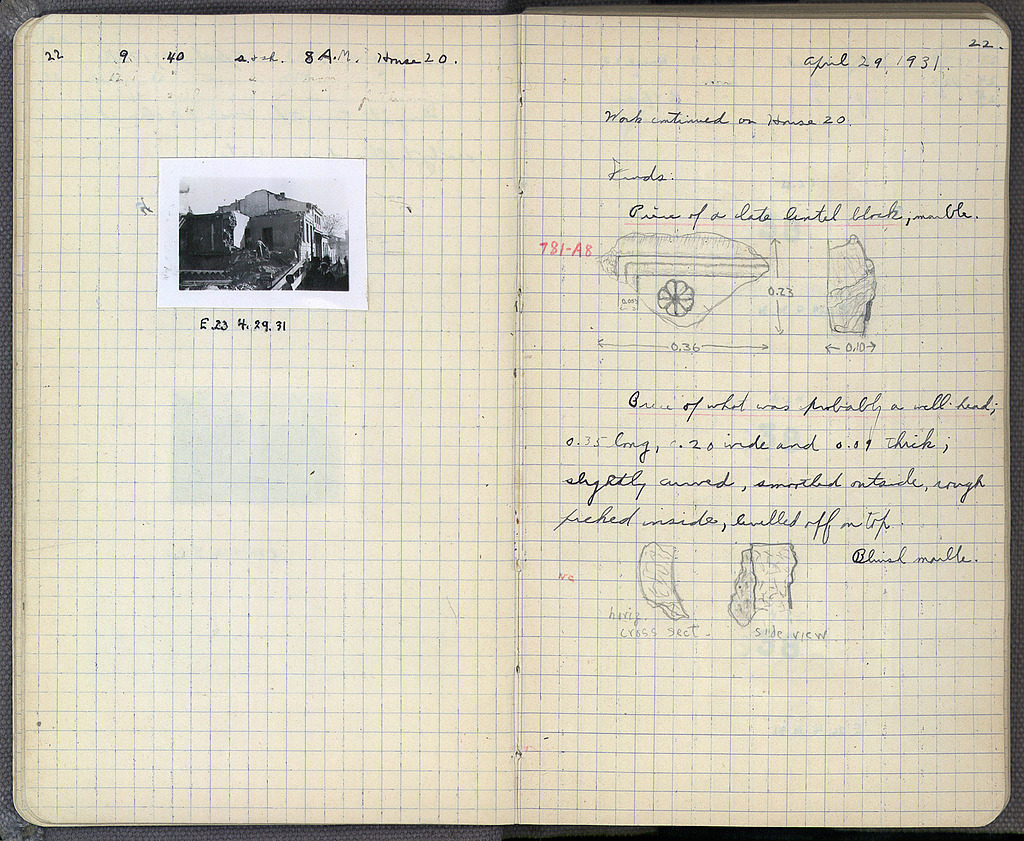 22 9. .40 8 A.M. House 20.
E.23 4.29.31
22.
April 29, 1931.
Work continued on House 20.
Finds:
Piece of a late lintel block, marble.
781-A8
0.23
0.36
0.10
Piece of what was probably a well-head;
0.35 long, 0.20 wide and 0.09 thick;
slightly curved, smoothed outside, rough
picked inside, levelled off on top.
Bluish marble.
NG
horiz
cross sect.
side view